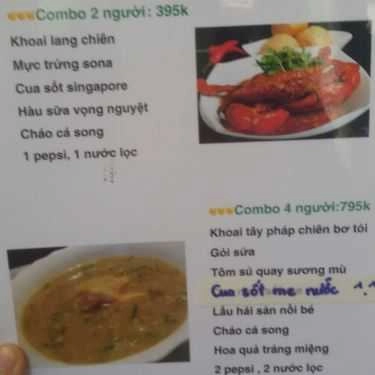 Combo 2 người: 395k
Khoai lang chiên
Mực trứng sona
Cua sốt singapore
Hàu sữa vọng nguyệt
Cháo cá song
1 pepsi, 1 nước lọc
Combo 4 người:795k
Khoai tây pháp chiên bơ tỏi
Gỏi sứa
Tôm sú quay sương mù
Cua sốt me nước
Lẩu hải sản nồi bé
Cháo cá song
Hoa quả tráng miệng
2 pepsi , 2 nước lọc